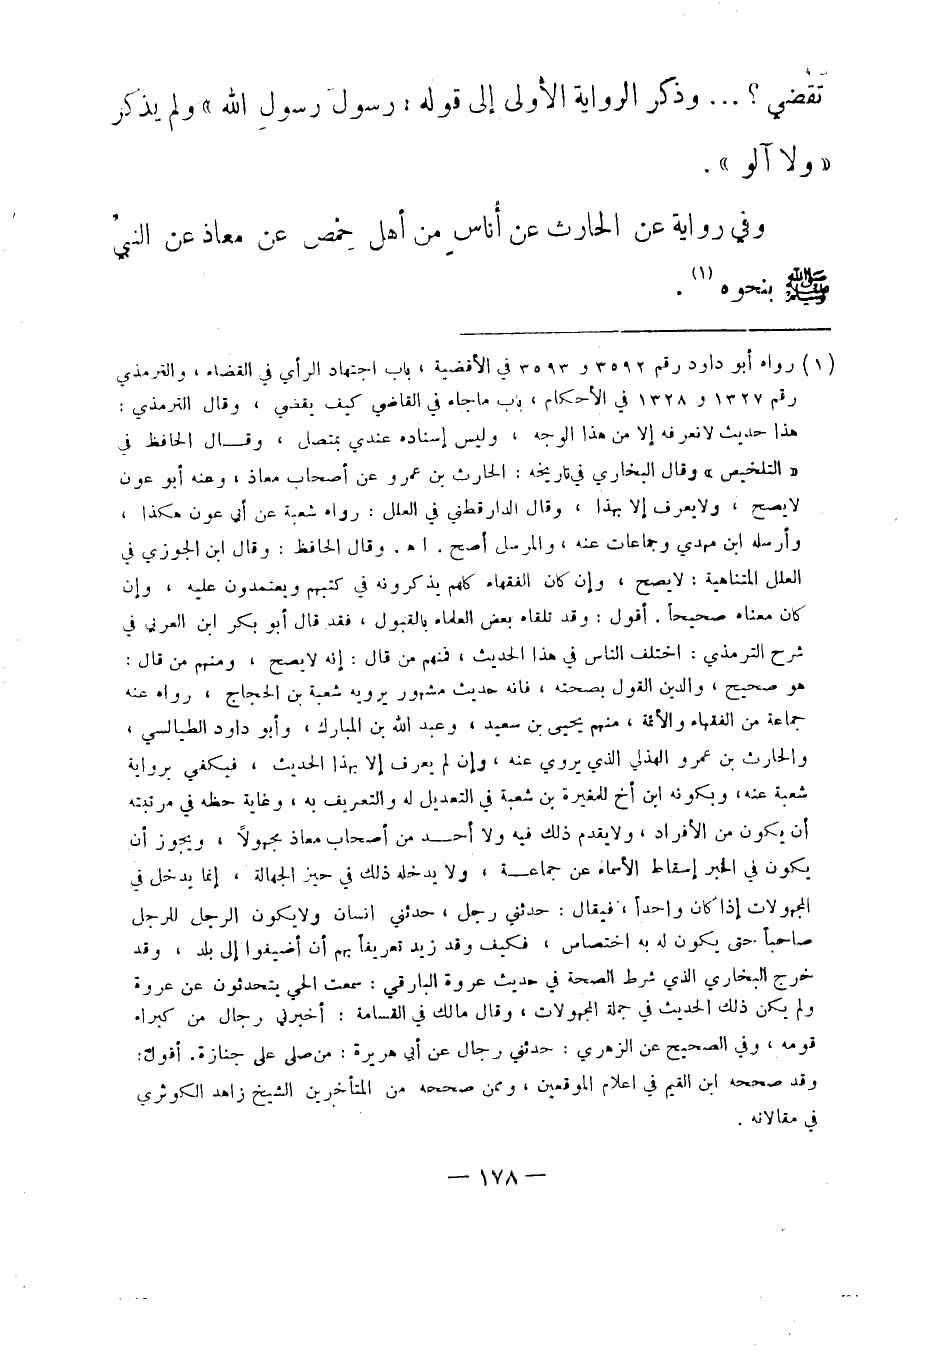 تَقْضي ؟ ... وذكر الرواية الأولى إلى قوله : رسولَ رسولِ الله » ولم يذكر
« ولا آلو » .
وفي رواية عن الحارث عن أُناسٍ من أهل حِمْص عن معاذ عن النبيِّ
ﷺ بنحوه (١) .
(١) رواه أبو داود رقم ٣٥٩٢ و ٣٥٩٣ في الأقضية ، باب اجتهاد الرأي في القضاء ، والترمذي
رقم ١٣٢٧ و ١٣٢٨ في الأحكام ، باب ماجاء في القاضي كيف يقضي ، وقال الترمذي :
هذا حديث لانعرفه إلا من هذا الوجه ، وليس إسناده عندي بمتصل ، وقـــال الحافظ في
« التلخيص » وقال البخاري في تاريخه : الحارث بن عمرو عن أصحاب معاذ ، وعنه أبو عون
لايصح ، ولايعرف إلا بهذا ، وقال الدارقطني في العلل : رواه شعبة عن أبي عون هكذا ،
وأرسله ابن مهدي وجماعات عنه ، والمرسل أصح . ا ه . وقال الحافظ : وقال ابن الجوزي في
العلل المتناهية : لايصح ، وإن كان الفقهاء كلهم يذكرونه في كتبهم ويعتمدون عليه ، وإن
كان معناه صحيحاً . أقول : وقد تلقاه بعض العلماء بالقبول ، فقد قال أبو بكر ابن العربي في
شرح الترمذي : اختلف الناس في هذا الحديث ، فمنهم من قال : إنه لايصح ، ومنهم من قال :
هو صحيح ، والدين القول بصحته ، فانه حديث مشهور يرويه شعبة بن الحجاج ، رواه عنه
جماعة من الفقهاء والأئمة ، منهم يحيى بن سعيد ، وعبد الله بن المبارك ، وأبو داود الطيالسي ،
والحارث بن عمرو الهذلي الذي يروي عنه ، وإن لم يعرف إلا بهذا الحديث ، فيكفي برواية
شعبة عنه، وبكونه ابن أخ للمغيرة بن شعبة في التعديل له والتعريف به ، وغاية حظه في مرتبته
أن يكون من الأفراد ، ولايقدم ذلك فيه ولا أحـــد من أصحاب معاذ مجهولاً ، ويجوز أن
يكون في الخبر إسقاط الأسماء عن جماعـــة ، ولا يدخله ذلك في حيز الجهالة ، إنما يدخل في
المجهولات إذا كان واحداً ، فيقال : حدثني رجل ، حدثني انسان ولايكون الرجل للرجل
صاحباً حتى يكون له به اختصاص ، فكيف وقد زيد تعريفاً بهم أن أضيفوا إلى بلد ، وقد
خرج البخاري الذي شرط الصحة في حديث عروة البارقي : سمعت الحي يتحدثون عن عروة
ولم يكن ذلك الحديث في جملة المجهولات ، وقال مالك في القسامة : أخبرني رجال من كبراء
قومه ، وفي الصحيح عن الزهري : حدثني رجال عن أبي هريرة : من صلى على جنازة. أقول:
وقد صححه ابن القيم في اعلام الموقعين ، وممن صححه من المتأخرين الشيخ زاهد الكوثري
في مقالاته .
— ١٧٨ —